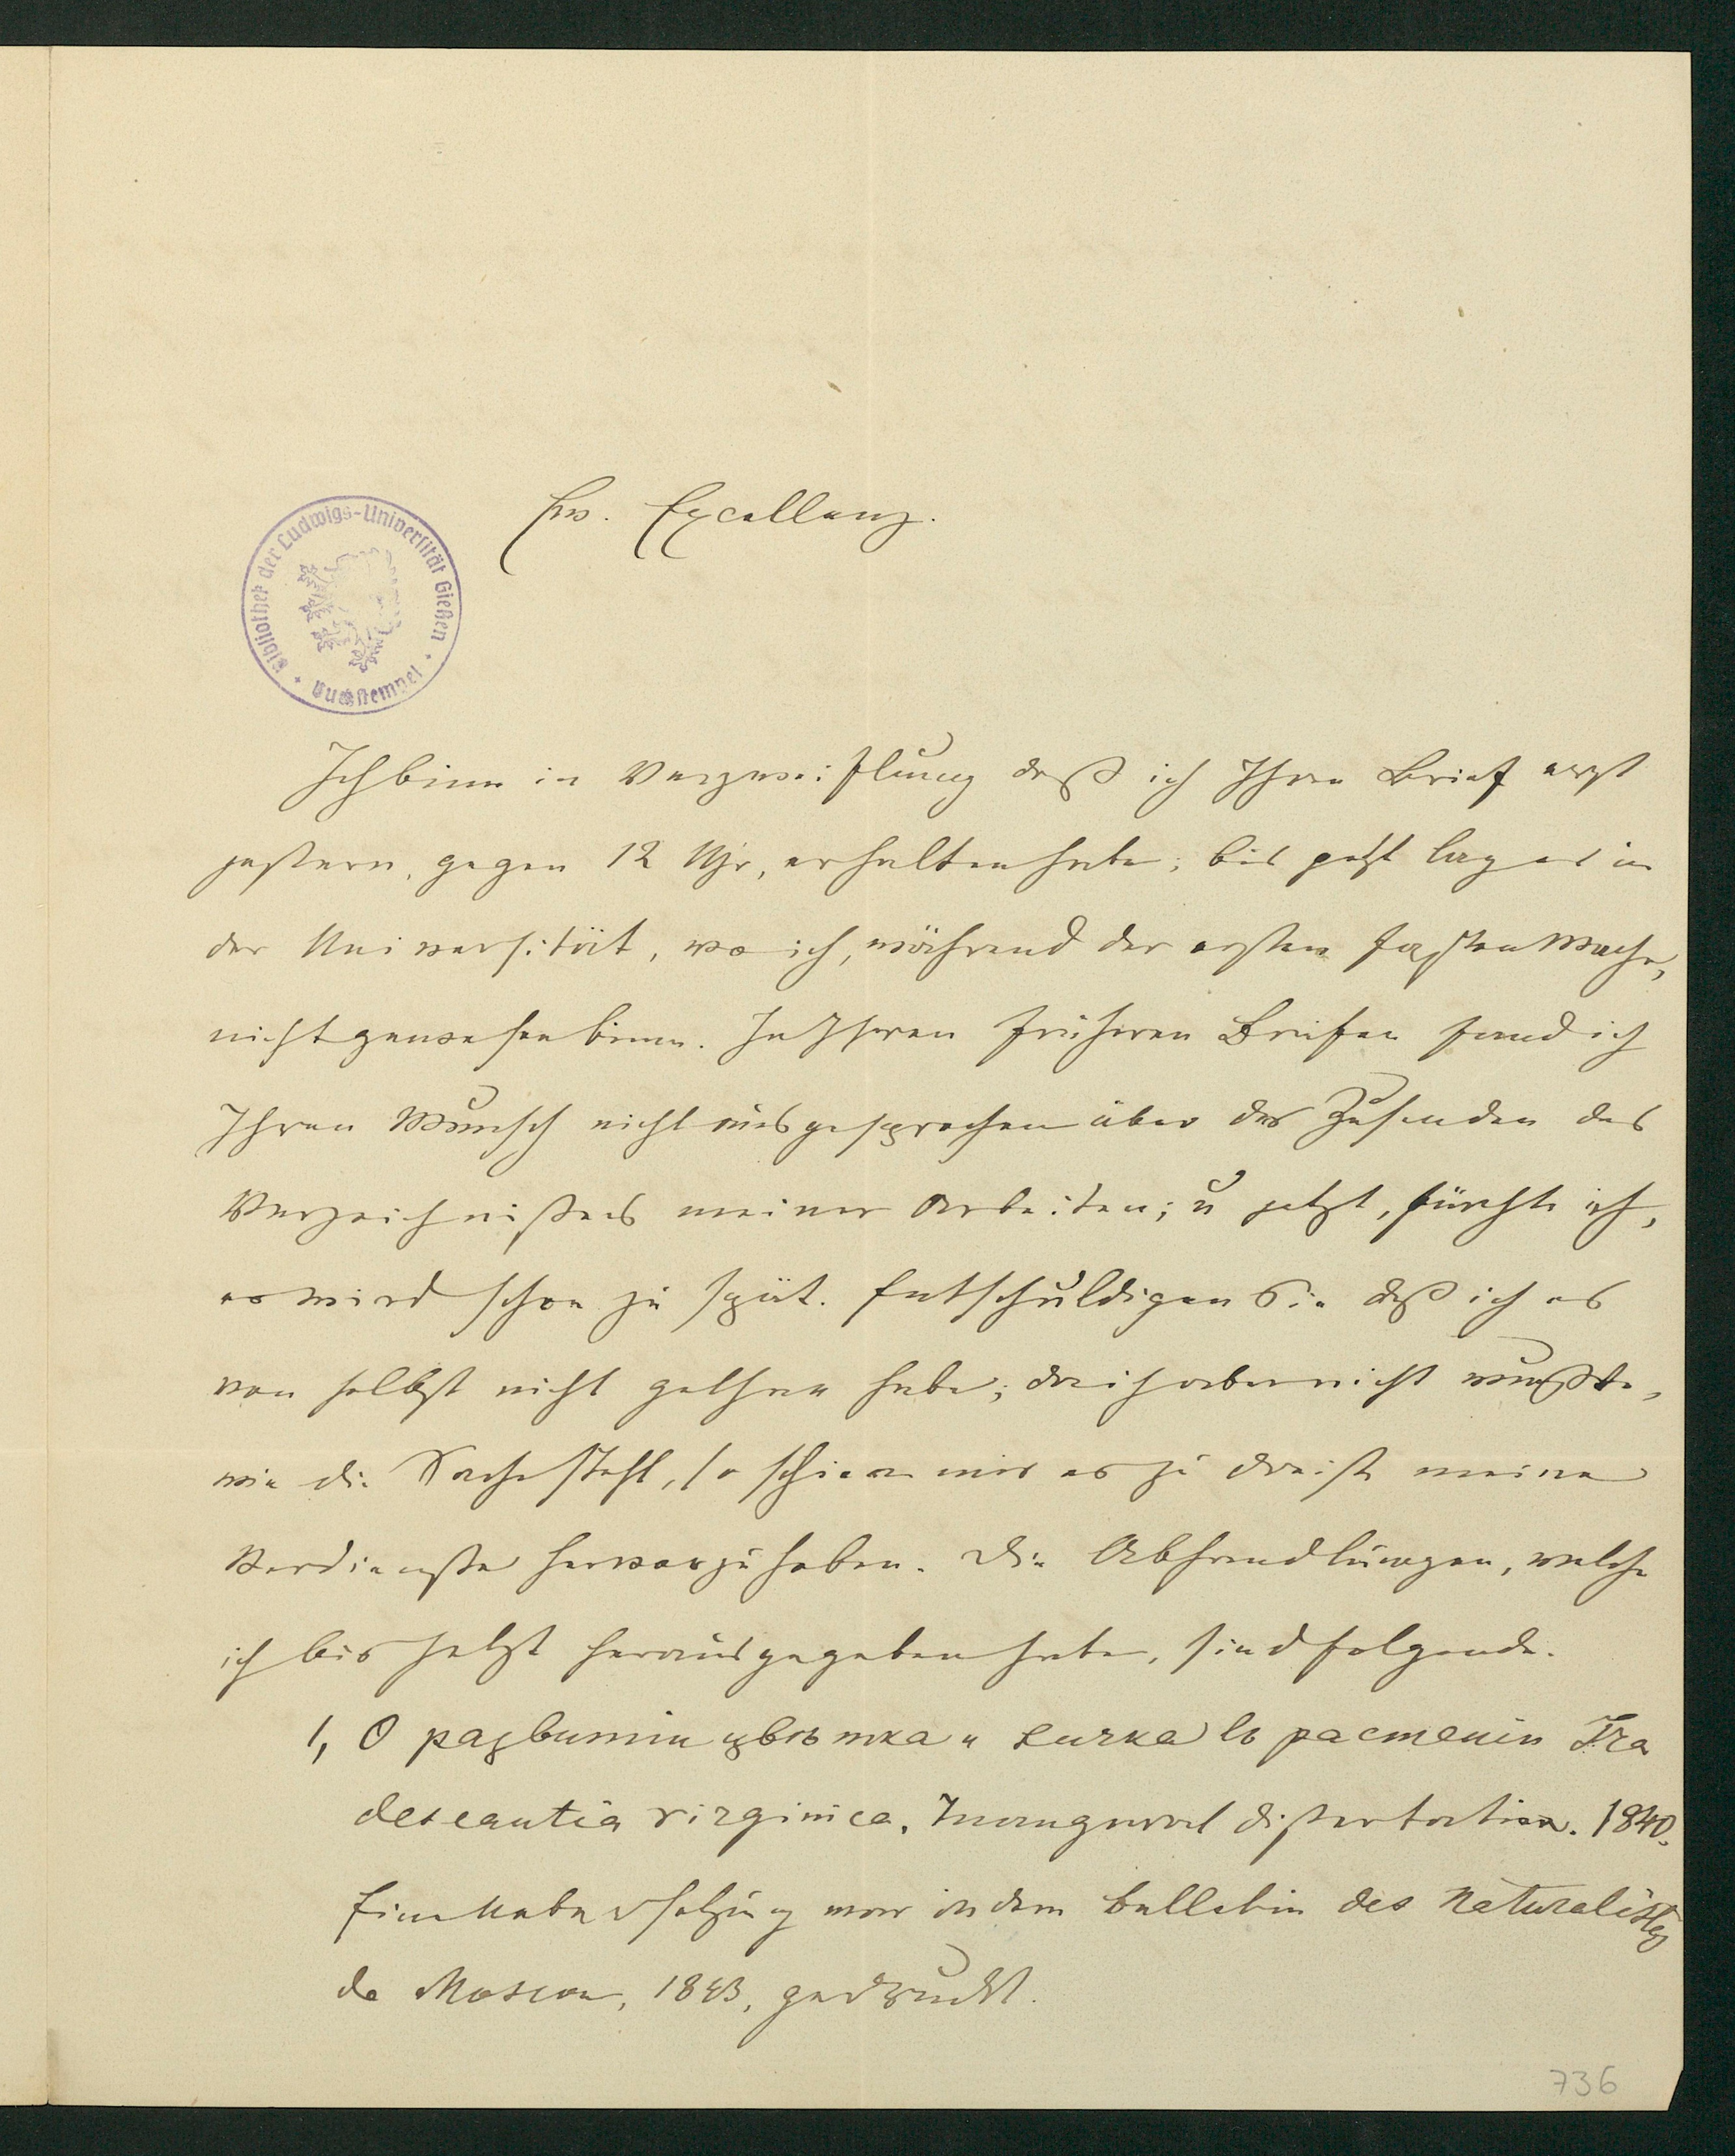 Ew. Excellenz.
Bibliothek der Ludwigs-Universität Gießen
Buchstempel
Ich binn in Verzweiflung daß ich Ihren Brief erst
gestern, gegen 12 Uhr, erhalten habe; bis jetzt lag es in
der Universität, wo ich, während der ersten Fasten Woche,
nicht gewesen binn. In Ihren früheren Briefen fand ich
Ihren Wunsch nicht ausgesprochen über das Zusenden des
Verzeichnißes meiner Arbeiten; u jetzt, fürchte ich,
es wird schon zu spät. Entschuldigen Sie daß ich es
von selbst nicht gethan habe; da ich aber nicht wußte,
wie die Sache steht, so schien mir es zu dreist meine
Verdienste hervorzuheben. Die Abhandlungen, welche
ich bis jetzt herausgegeben habe, sind folgende.
1, О развитии цвѣтка и яичка въ растении Tra
descantia virginica. Inaugural dissertation. 1840.
Eine Uebersetzung war in dem Bulletin des Naturalistes
de Moscou, 1843, gedruckt.
736